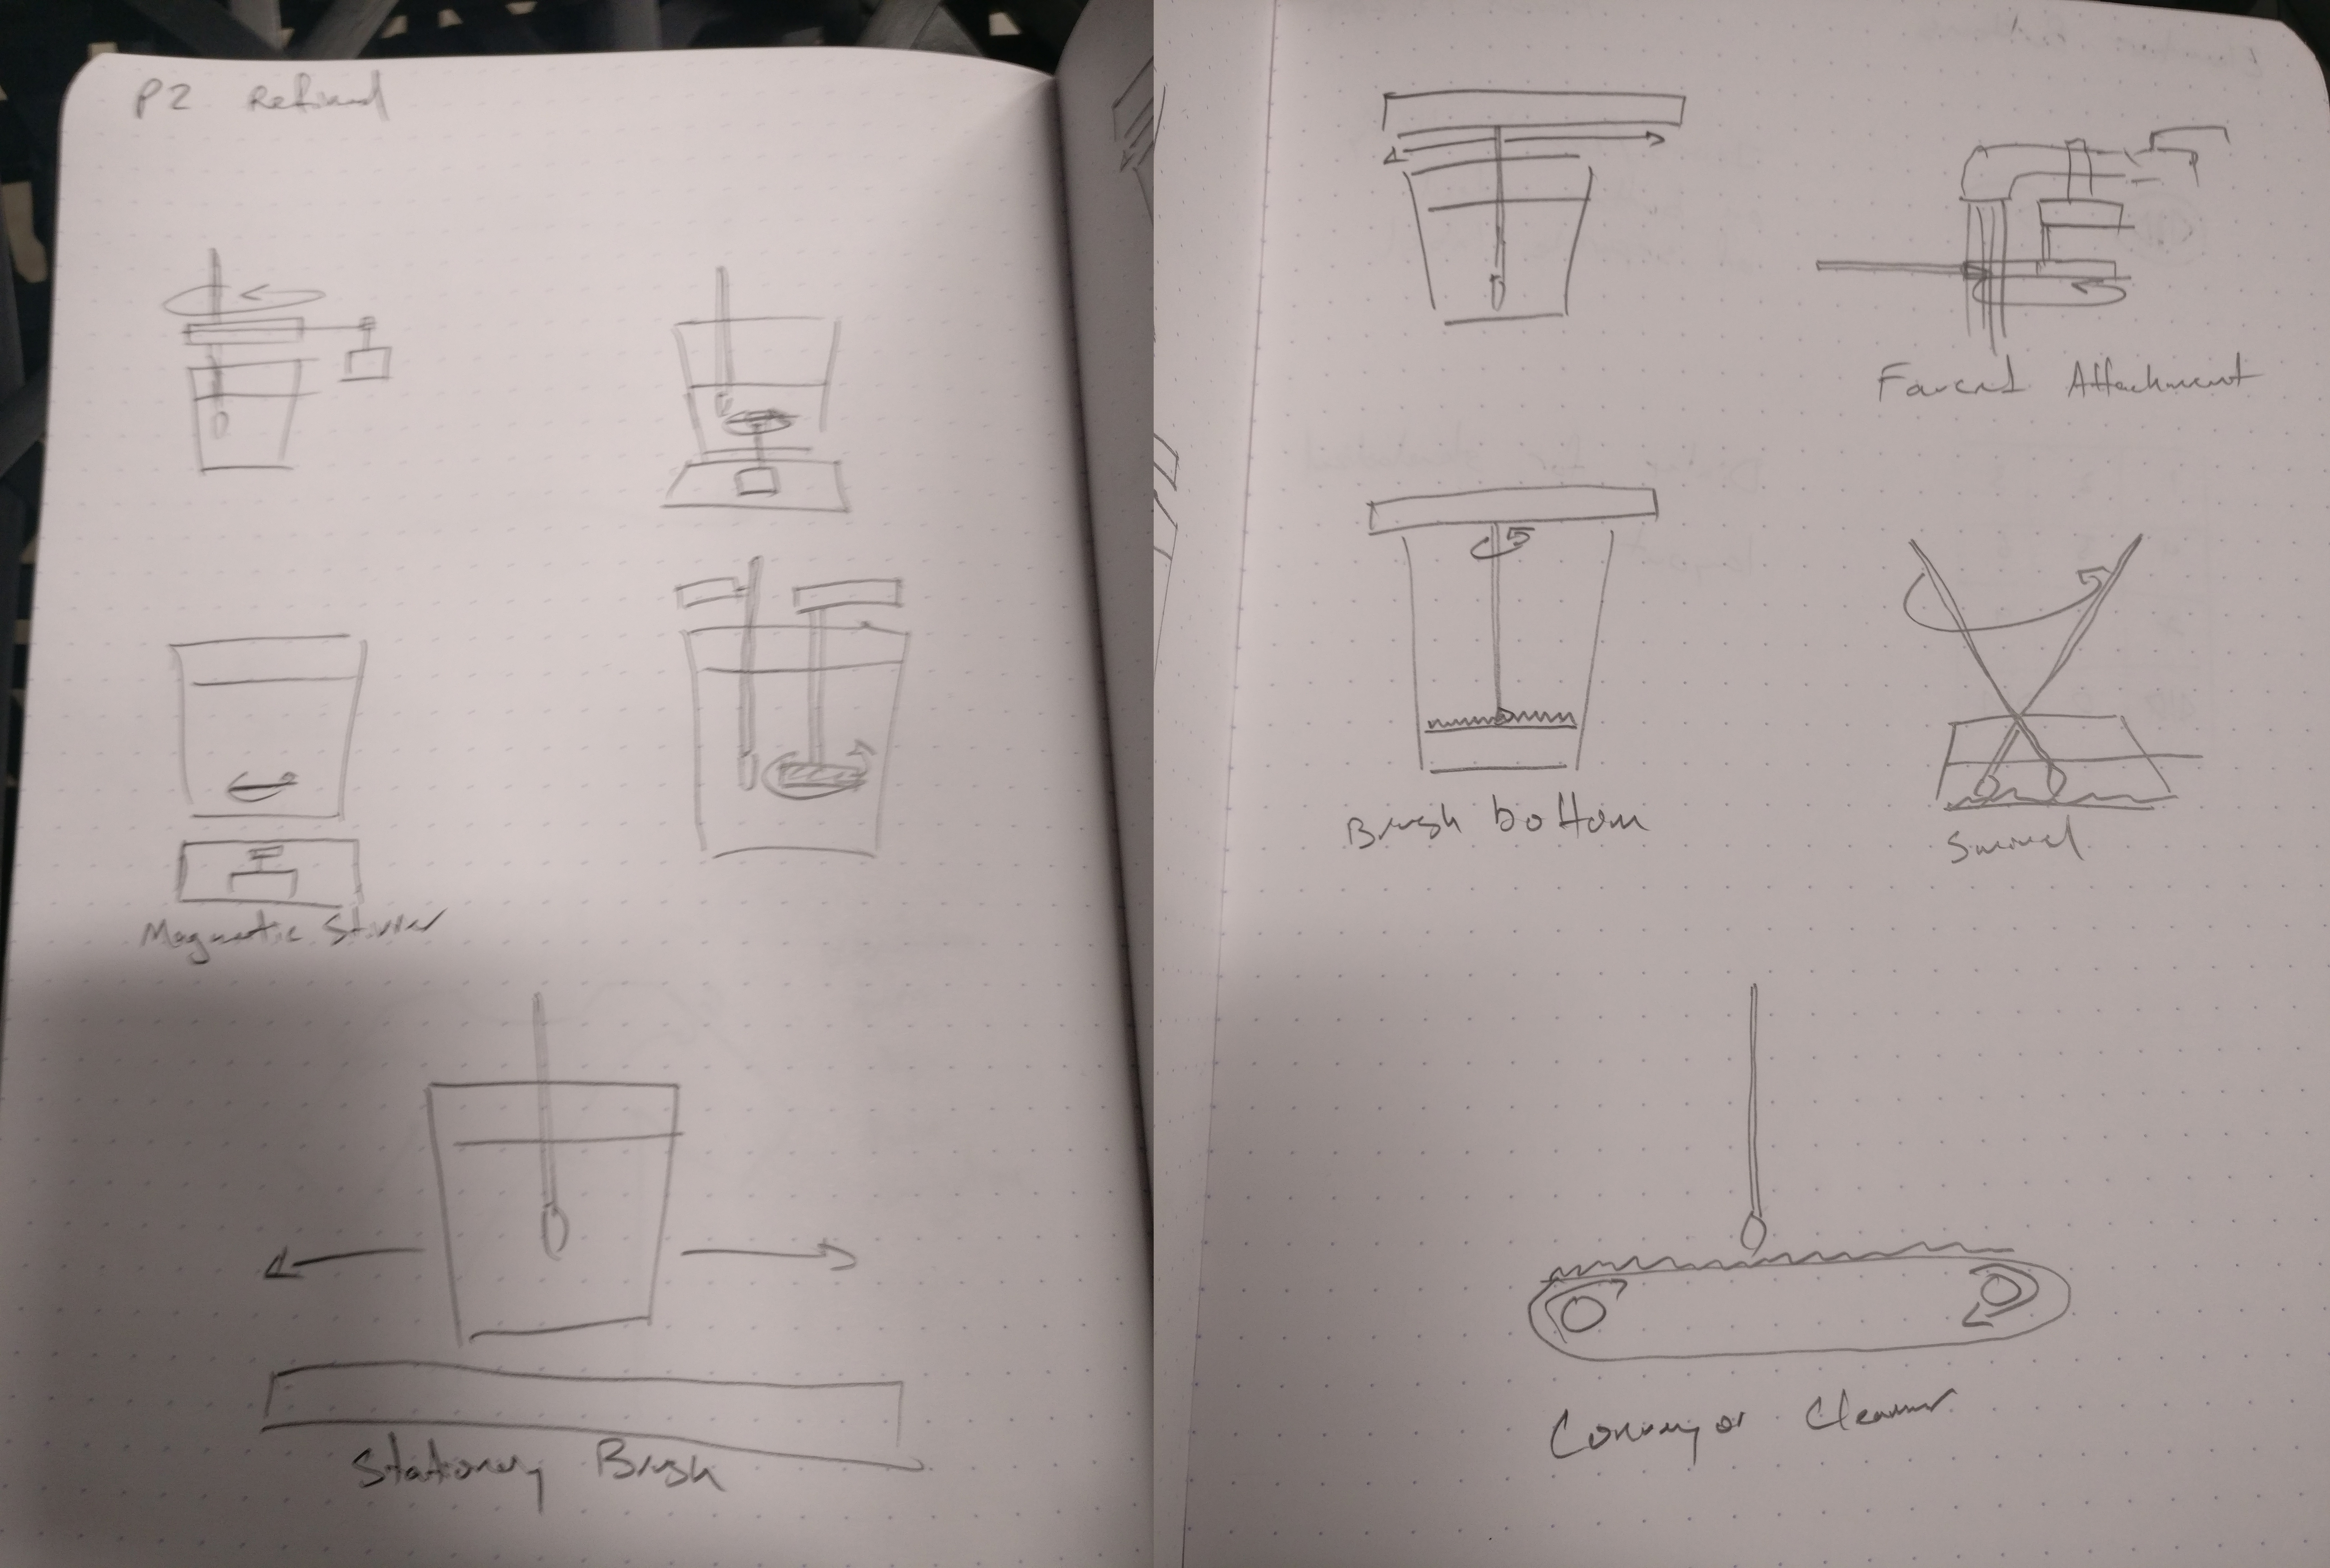 P2 Refined
Magnetic Stirrer
Stationary Brush
Faucet Attachment
Brush bottom
Swivel
Conveyor Cleaner